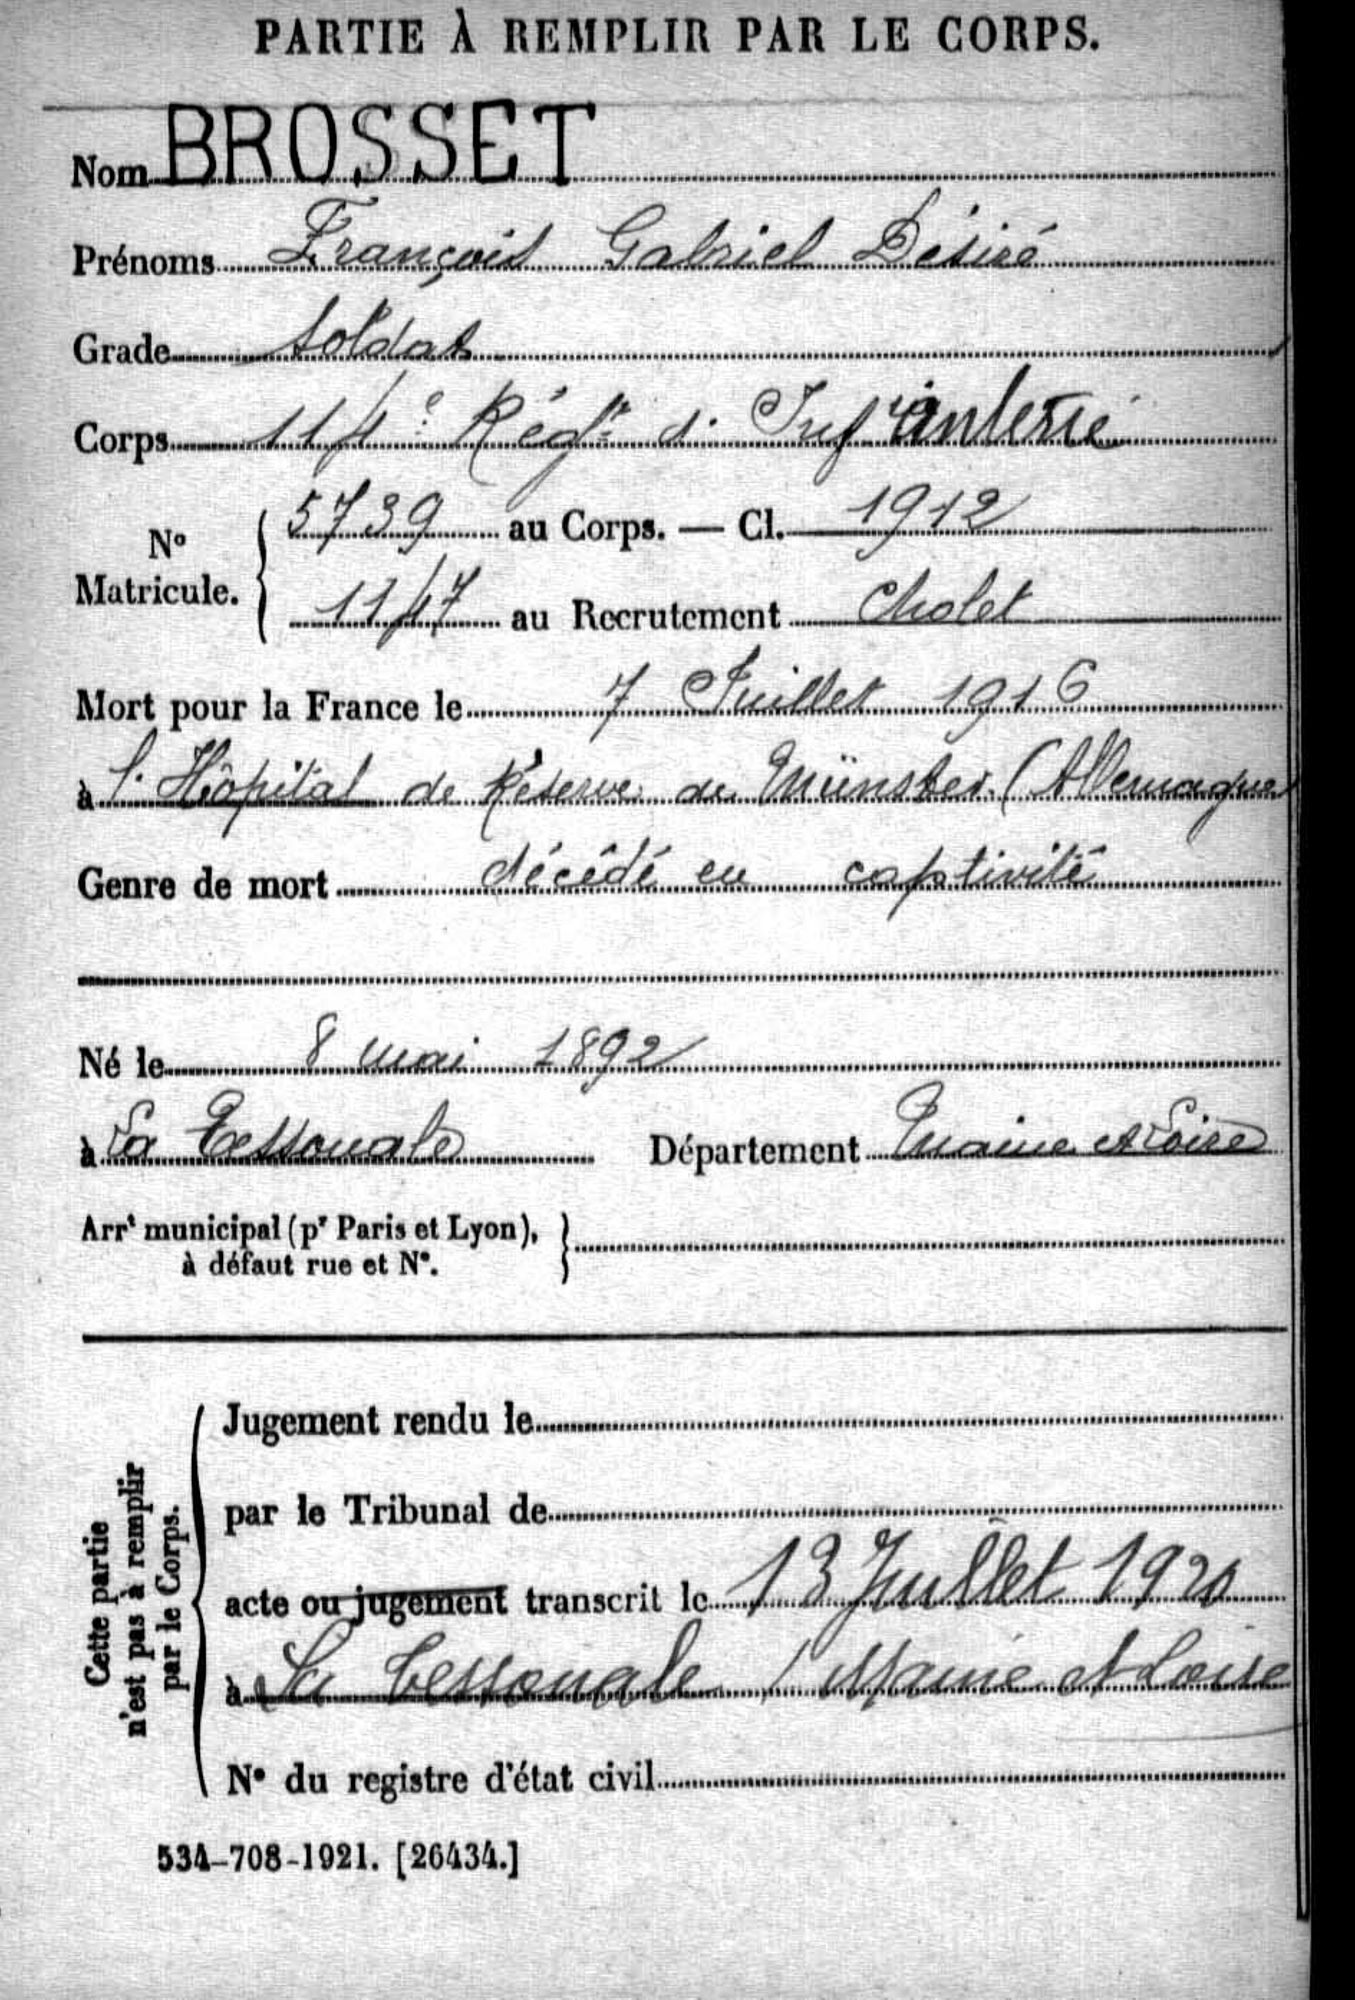 PARTIE À REMPLIR PAR LE CORPS.
Nom BROSSET
Prénoms François Gabriel Désiré
Grade Soldat
Corps 114e Régt d'Infanterie
No Matricule. { 5739 au Corps. — Cl. 1912
1147 au Recrutement Cholet
Mort pour la France le 7 Juillet 1916
à l'Hôpital de Réserve de Münster (Allemagne
Genre de mort décédé en captivité
Né le 8 mai 1892
à La Tessoualle Département Maine et Loire
Arrt municipal (pr Paris et Lyon), }
à défaut rue et No.
Cette partie
n'est pas à remplir
par le Corps.
Jugement rendu le
par le Tribunal de
acte ou jugement transcrit le 13 Juillet 1920
à La Tessoualle (Maine et Loire
No du registre d'état civil
534-708-1921. [26434.]